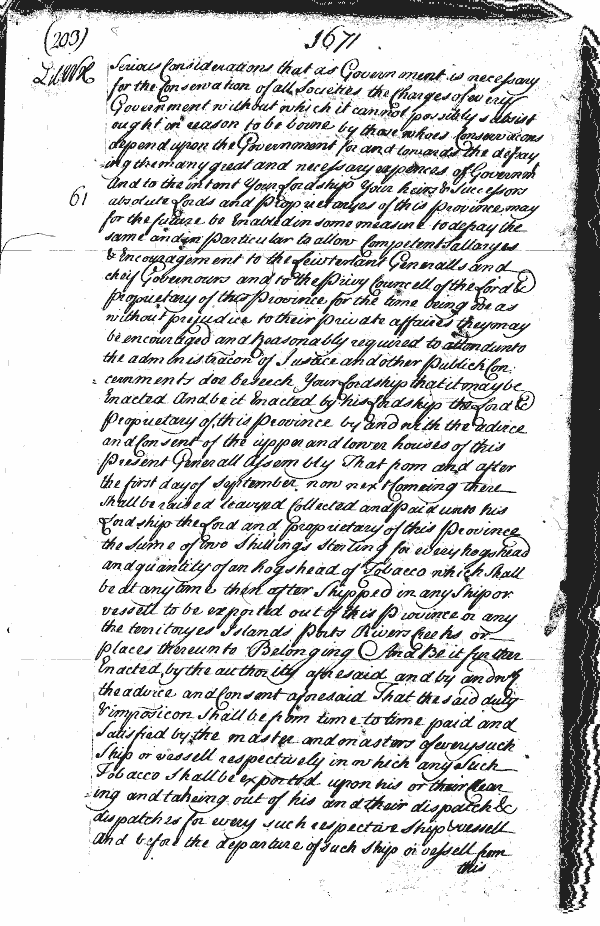 (203)
1671
Lib WH
Serious Considerations that as Government is necessary
for the Conservation of all Societies the Charges of every
Government without which it cannot possibly subsist
ought in reason to be borne by those whoes Conservacions
depend upon the Government for and towards the defray
ing the many great and necessary expences of Governmt
And to the intent Your Lordship Your heirs & Successors
61
absolute Lords and Proprietaryes of this Province may
for the future be Enabled in some measure to defray the
same and in Particular to allow Competent Sallaryes
& Encouragement to the Leiutenant Generalls and
cheif Governours and to the Privy Councell of the Lord &
Proprietary of this Province for the time being soe as
without prejudice to their private affaires they may
be encouraged and Reasonably required to attend unto
the administracon of Justice and other Publick Con
cernments doe beseech Your Lordship that it may be
Enacted And be it Enacted by his Lordship the Lord &
Proprietary of this Province by and with the advice
and Consent of the upper and lower houses of this
Present Generall Assembly That from and after
the first day of September now next Comeing there
shall be raised leavyed Collected and Paid unto his
Lordship the Lord and proprietary of this Province
the sume of two shillings sterling for every hogshead
and quantity of an hogshead of Tobacco which shall
be at any time then after Shipped in any Ship or
vessell to be exported out of this Province or any
the territoryes Islands Ports Rivers Creeks or
places thereunto Belonging And Be it further
Enacted by the authority aforesaid and by and with
the advice and Consent aforesaid That the said duty
& imposicon Shall be from time to time paid and
Satisfied by the master and masters of every such
Ship or vessell respectively in which any Such
Tobacco Shall be exported upon his or their Clear
ing and takeing out of his and their dispatch &
dispatches for every such respective Ship & vessell
And before the departure of such ship or vessell from
this